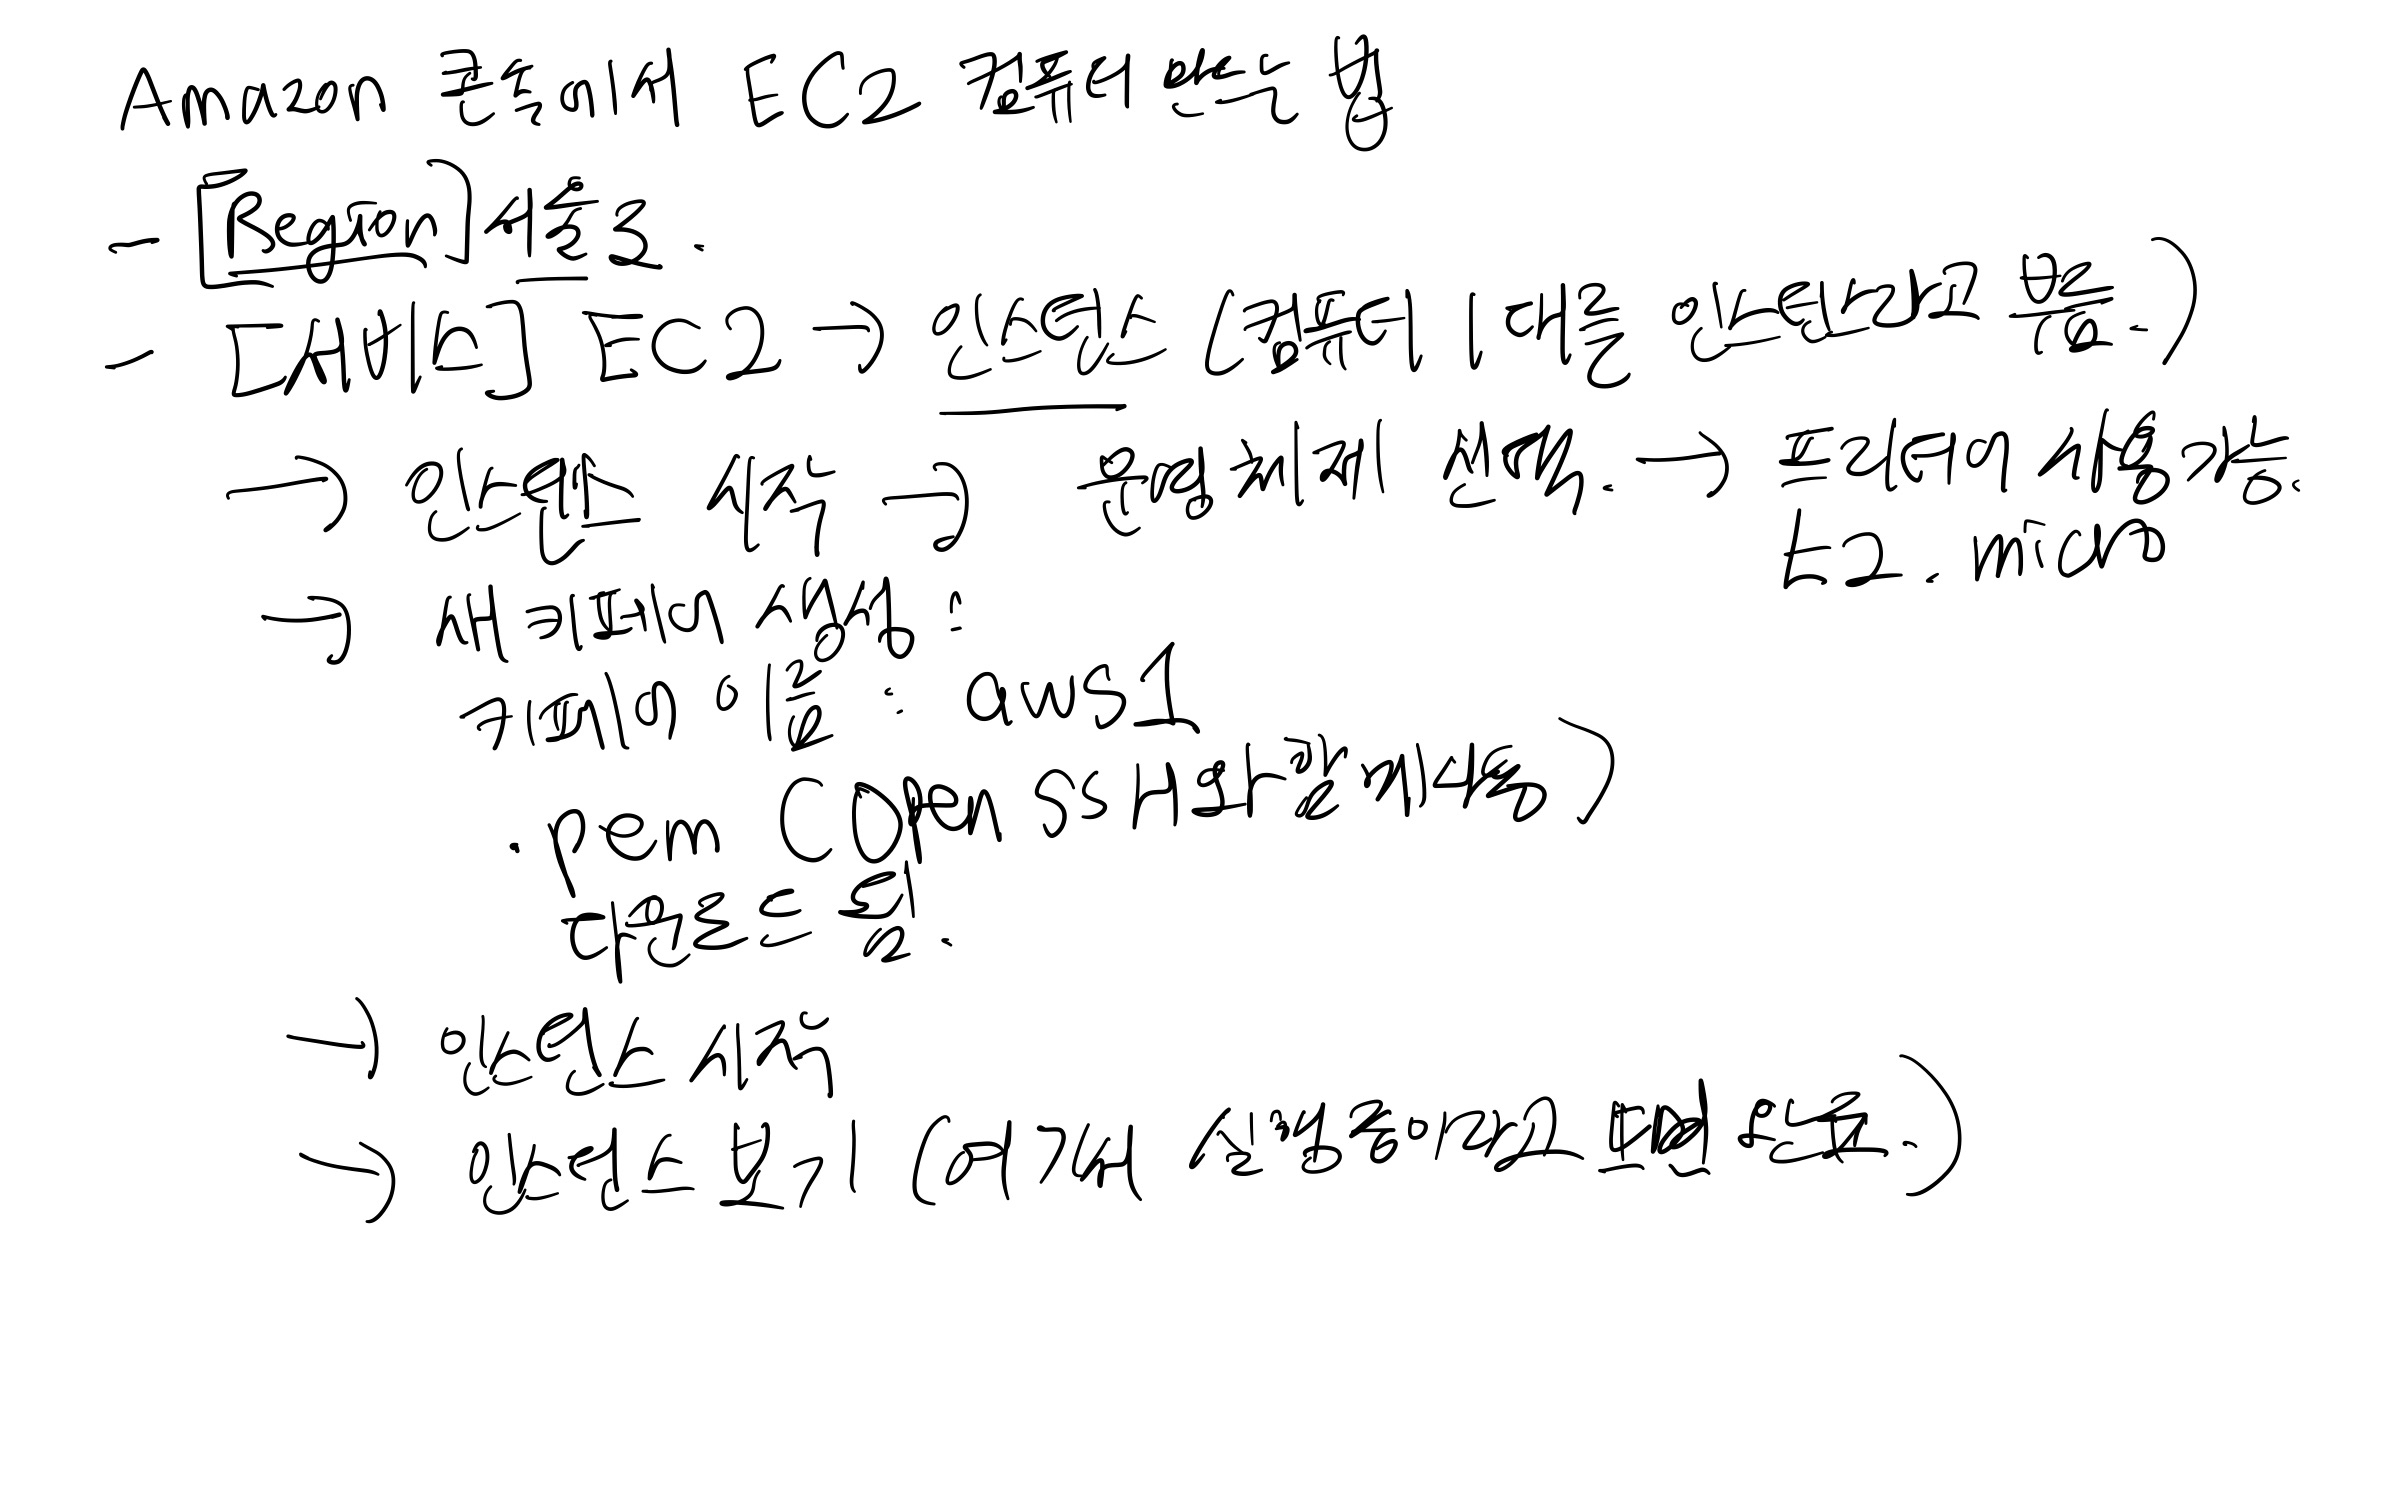 Amazon 콘솔에서 EC2 컴퓨터 만드는 법
- [Region] 서울로.
- [서비스] EC2 → 인스턴스 (컴퓨터 1대를 인스턴스라고 부름.)
→ 인스턴스 시작 → 운영체제 선택. → 프리티어 사용가능.
t2.micro
→ 새 키페어 생성 :
키페어 이름 : aws1
.pem (Open SSH와 함께 사용)
다운로드 됨.
→ 인스턴스 시작
→ 인스턴스 보기 (여기서 실행중이라고 되면 완료.)